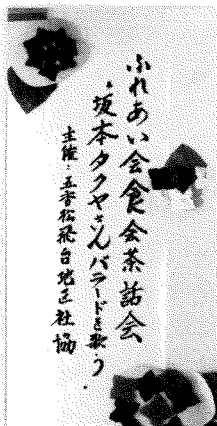 ふれあい会食会茶話会
"坂本タクヤさんバラードを歌う"
主催:五香松飛台地区社協